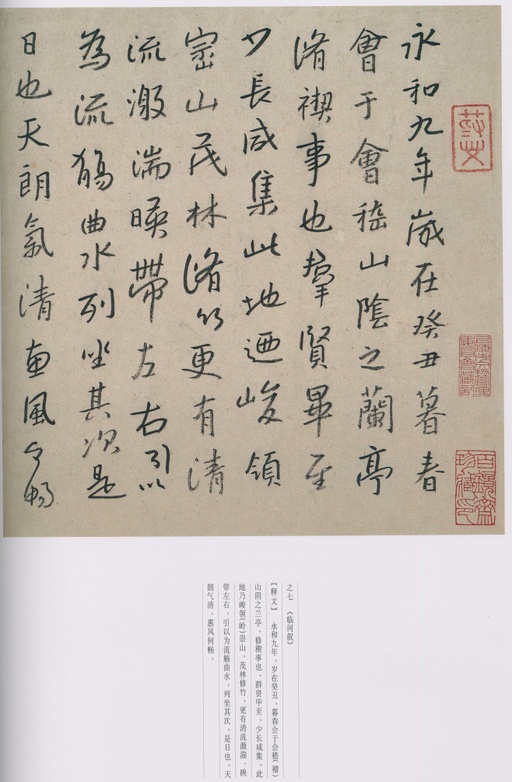 永和九年歲在癸丑暮春
會于會嵇山陰之蘭亭
脩禊事也羣賢畢至
少長咸集此地迺峻領
崇山茂林脩竹更有清
流激湍暎帶左右引以
為流觴曲水列坐其次是
日也天朗氣清惠風何暢
之七 《临河叙》
【释文】 永和九年，岁在癸丑，暮春会于会嵇(稽)
山阴之兰亭，修禊事也。群贤毕至，少长咸集。此
地乃峻领(岭)崇山，茂林修竹，更有清流激湍，映
带左右，引以为流觞曲水，列坐其次，是日也，天
朗气清，惠风何畅。